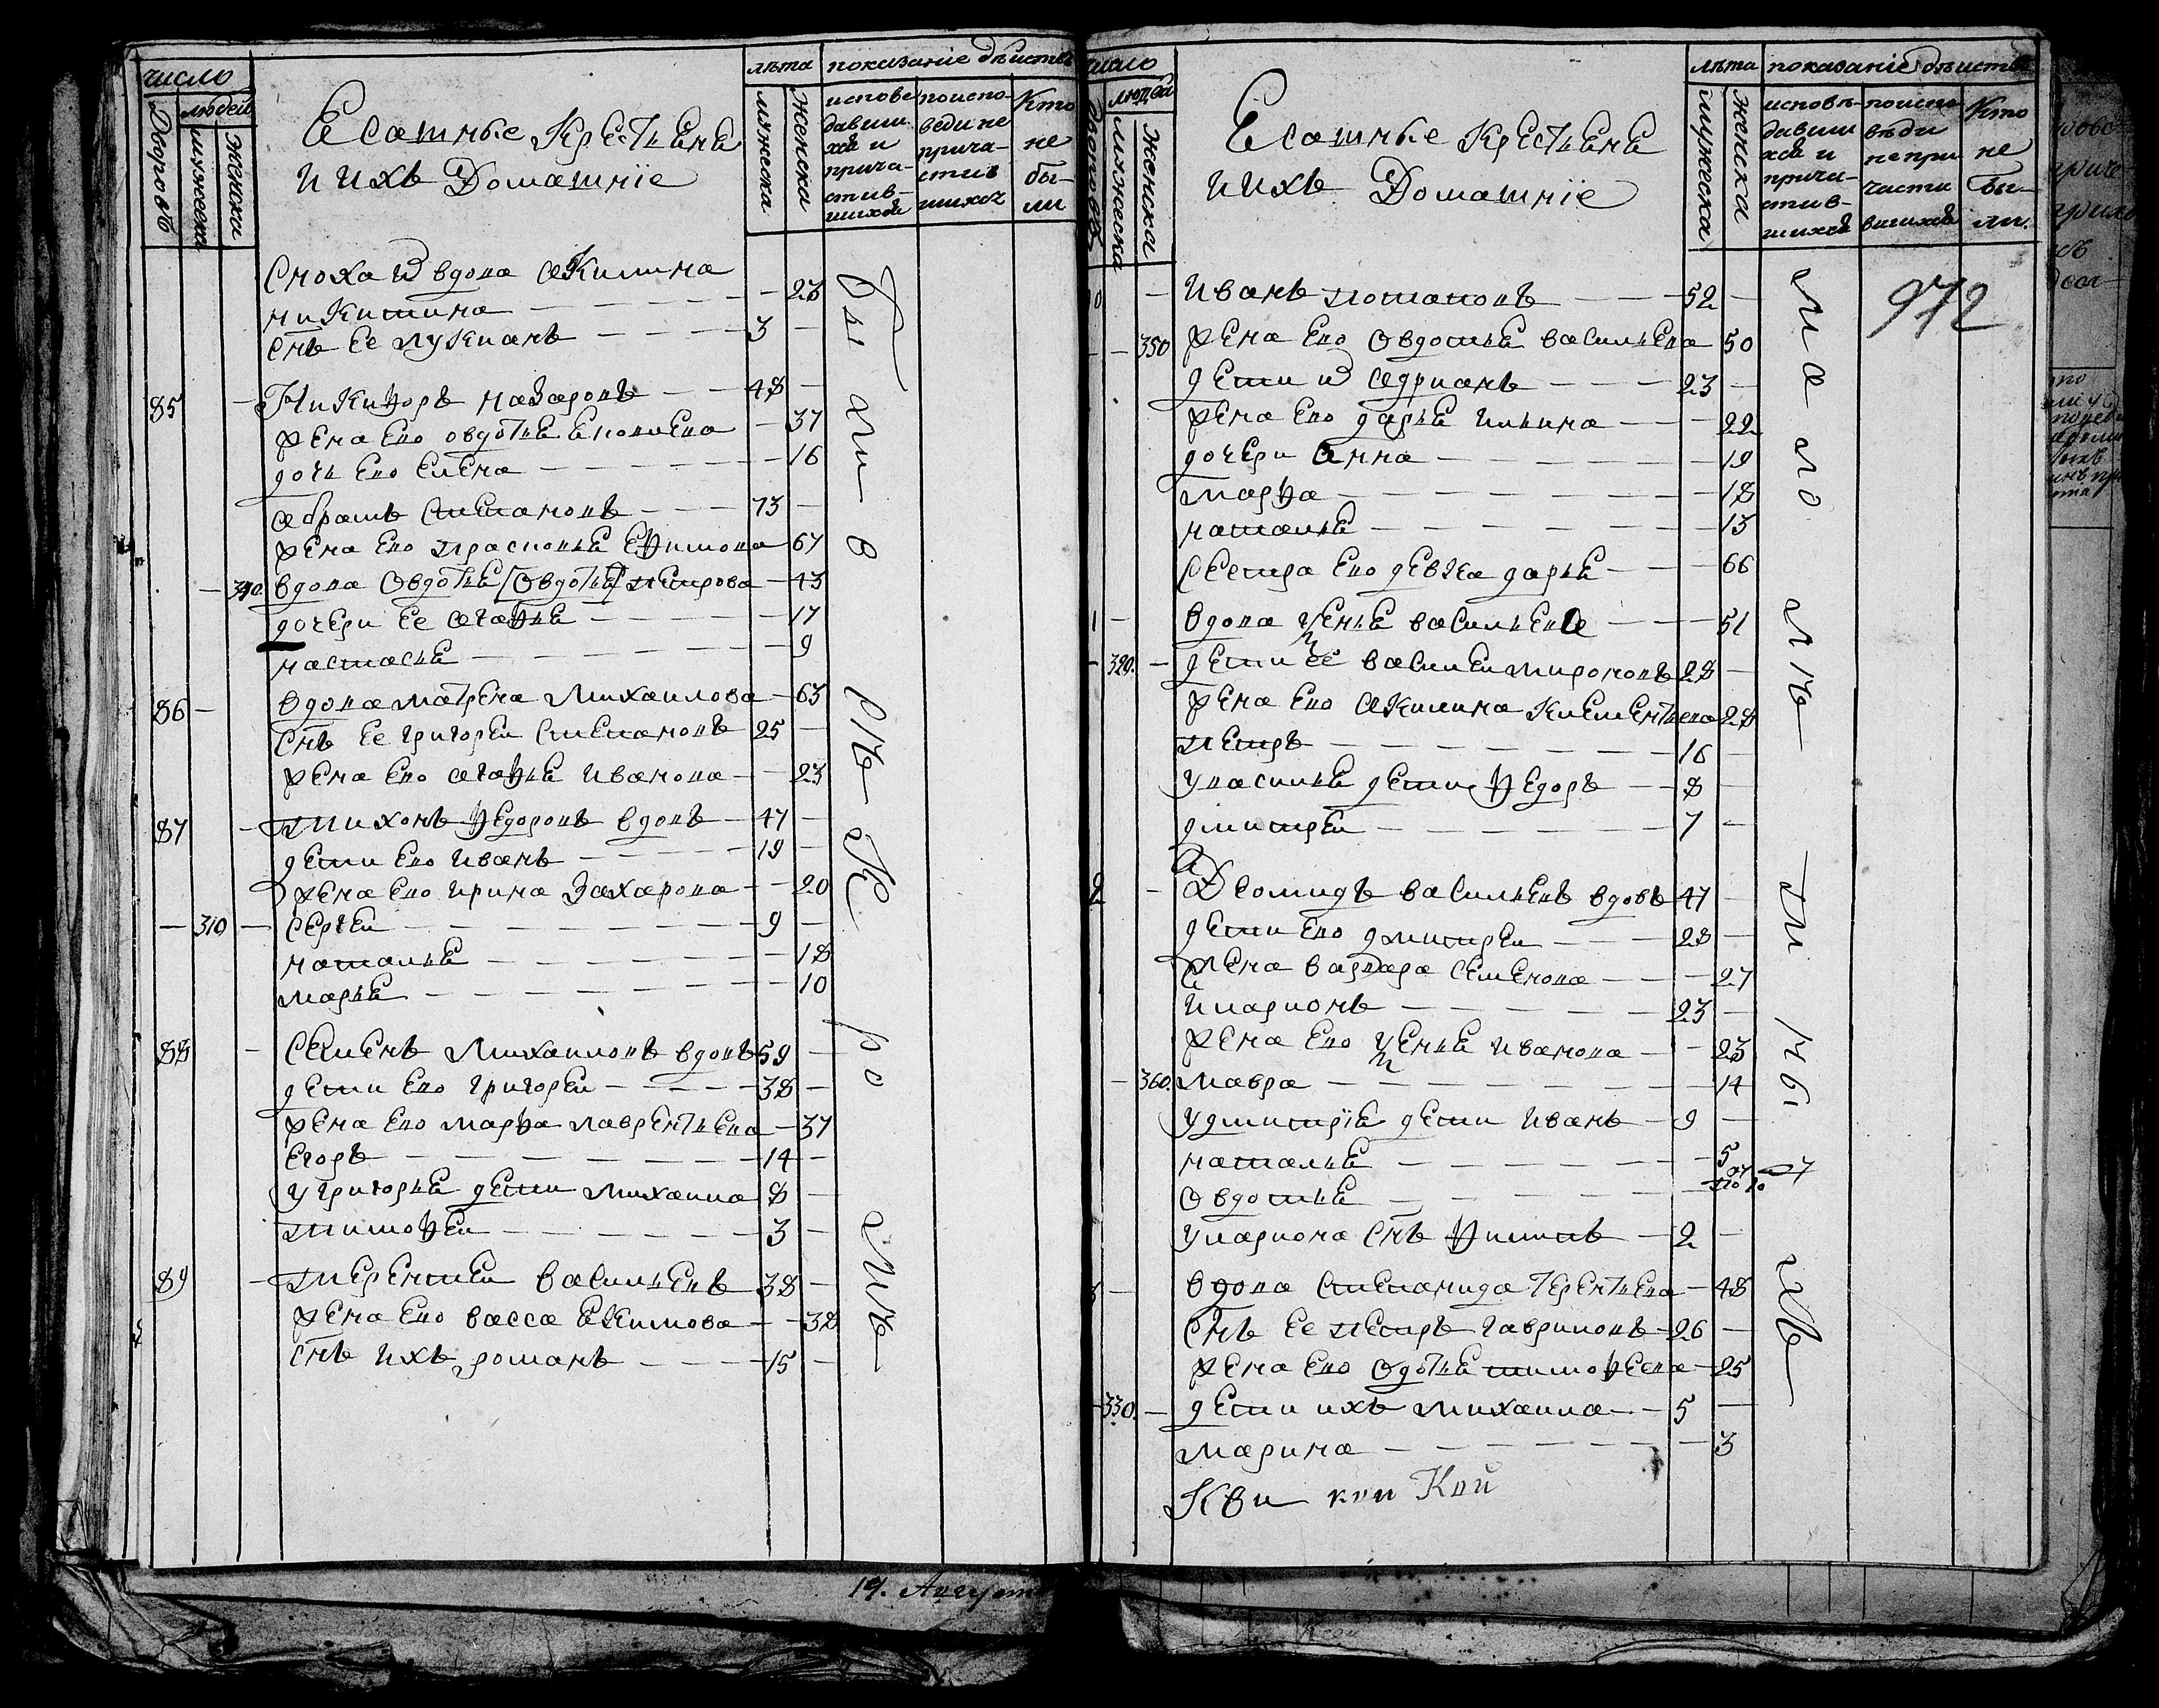 число
лѣта показаніе дѣиств
Дворовъ
людей
мужеска
женска
Есатные Крестьяня
и ихъ Домашніе
мужеска
женска
испове
давши
хся и
прича-
стив-
шихся
поиспо-
веди не
прича-
стив
шихся
Кто
не
бы-
ли
Сноха и вдова Акилина
никитина 23
Снъ Ее лукианъ 3
85 Никифоръ назаровъ 48
жена Ево овдотья 37
дочь Ево Елена 16
а братъ Степановъ 73
жена Ево прасковья Ефимова 67
340. вдова Овдотья (Овдотья) петрова 43
дочери Ее агафья 17
настасья 9
86 вдова матрена Михаилова 63
Снъ Ее григореи Степановъ 25
жена Ево агафья иванова 23
87 тихонъ федоровъ вдовъ 47
дети Ево иванъ 19
жена Ево ирина Захарова 20
310 сергеи 9
наталья 18
марья 10
88 Семенъ михаиловъ вдовъ 59
дети Ево григореи 38
жена Ево марфа лаврентьева 37
Егоръ 14
у григорья дети михаила 8
тимофеи 3
89 терентеи васильевъ 38
жена Ево васса Якимова 38
Снъ ихъ романъ 15
14. Августа
число
лѣта показаніе дѣиств
дворовъ
людей
мужеска
женска
Есатные Крестьяня
и ихъ Домашніе
мужеска
женска
исповѣ-
давши
хся и
прича-
стив-
шихся
поиспо
вѣди
непри
части
вшихся
Кто
не
бы-
ли.
972
0 Иванъ потаповъ 52
350 жена Ево Овдотья васильева 50
дети и адрианъ 23
жена Ево дарья ильина 22
дочери Анна 19
марфа 18
наталья 15
Сестра Ево девка дарья 66
1 вдова васильева 51
320. дети ее василеи мироновъ 28
жена Ево акилина Клементьева 28
петръ 16
у василья дети федоръ 8
дмитреи 7
2 Деомидъ васильевъ вдовъ 47
дети Ево дмитреи 28
жена варвара Семенова 27
иларионъ 23
жена Ево иванова 23
360. мавра 14
у дмитрія дети иванъ 9
наталья 5
Овдотья
у лариона Снъ филипъ 2
вдова Степанида Терентьева 48
Снъ Ее петръ гавриловъ 26
жена Ево Одотья тимофеева 25
330. дети ихъ михаила 5
марина 3
Кви кви Кви